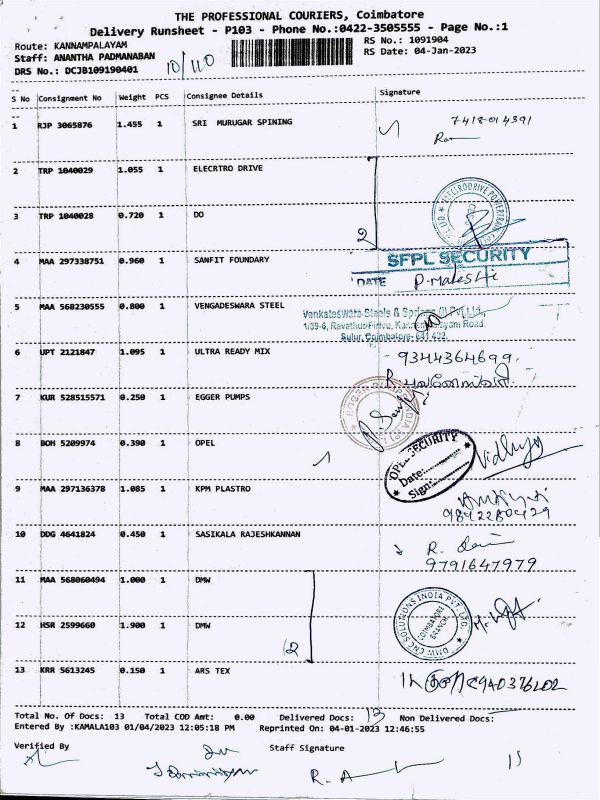 THE PROFESSIONAL COURIERS, Coimbatore
Delivery Runsheet - P103 - Phone No.:0422-3505555 - Page No.:1
Route: KANNAMPALAYAM
RS No.: 1091904
Staff: ANANTHA PADMANABAN
RS Date: 04-Jan-2023
DRS No.: DCJB109190401
10/110
S No Consignment No Weight PCS Consignee Details Signature
1 RJP 3065876 1.455 1 SRI MURUGAR SPINING 7418014391
2 TRP 1040029 1.055 1 ELECRTRO DRIVE
3 TRP 1040028 0.720 1 DO
2
4 MAA 297338751 0.960 1 SANFIT FOUNDARY
SFPL SECURITY
DATE
5 MAA 568230555 0.800 1 VENGADESWARA STEEL
Venkateswara Steels & Springs (I) Pvt Ltd.,
Sulur, Coimbatore- 641 402.
6 UPT 2121847 1.095 1 ULTRA READY MIX 9344364699.
7 KUR 528515571 0.250 1 EGGER PUMPS
8 BOM 5209974 0.390 1 OPEL
OPEL SECURITY
Date:
Sign:
Vidhya
9 MAA 297136378 1.085 1 KPM PLASTRO
9842280429
10 DDG 4641824 0.450 1 SASIKALA RAJESHKANNAN
9791647979
11 MAA 568060494 1.000 1 DMW
DMW CNC SOLUTIONS INDIA PVT. LTD.
COIMBATORE BRANCH
12 HSR 2599660 1.900 1 DMW
2
13 KRR 5613245 0.150 1 ARS TEX
Total No. Of Docs: 13 Total COD Amt: 0.00 Delivered Docs: 13 Non Delivered Docs:
Entered By :KAMALA103 01/04/2023 12:05:18 PM Reprinted On: 04-01-2023 12:46:55
Verified By
Staff Signature